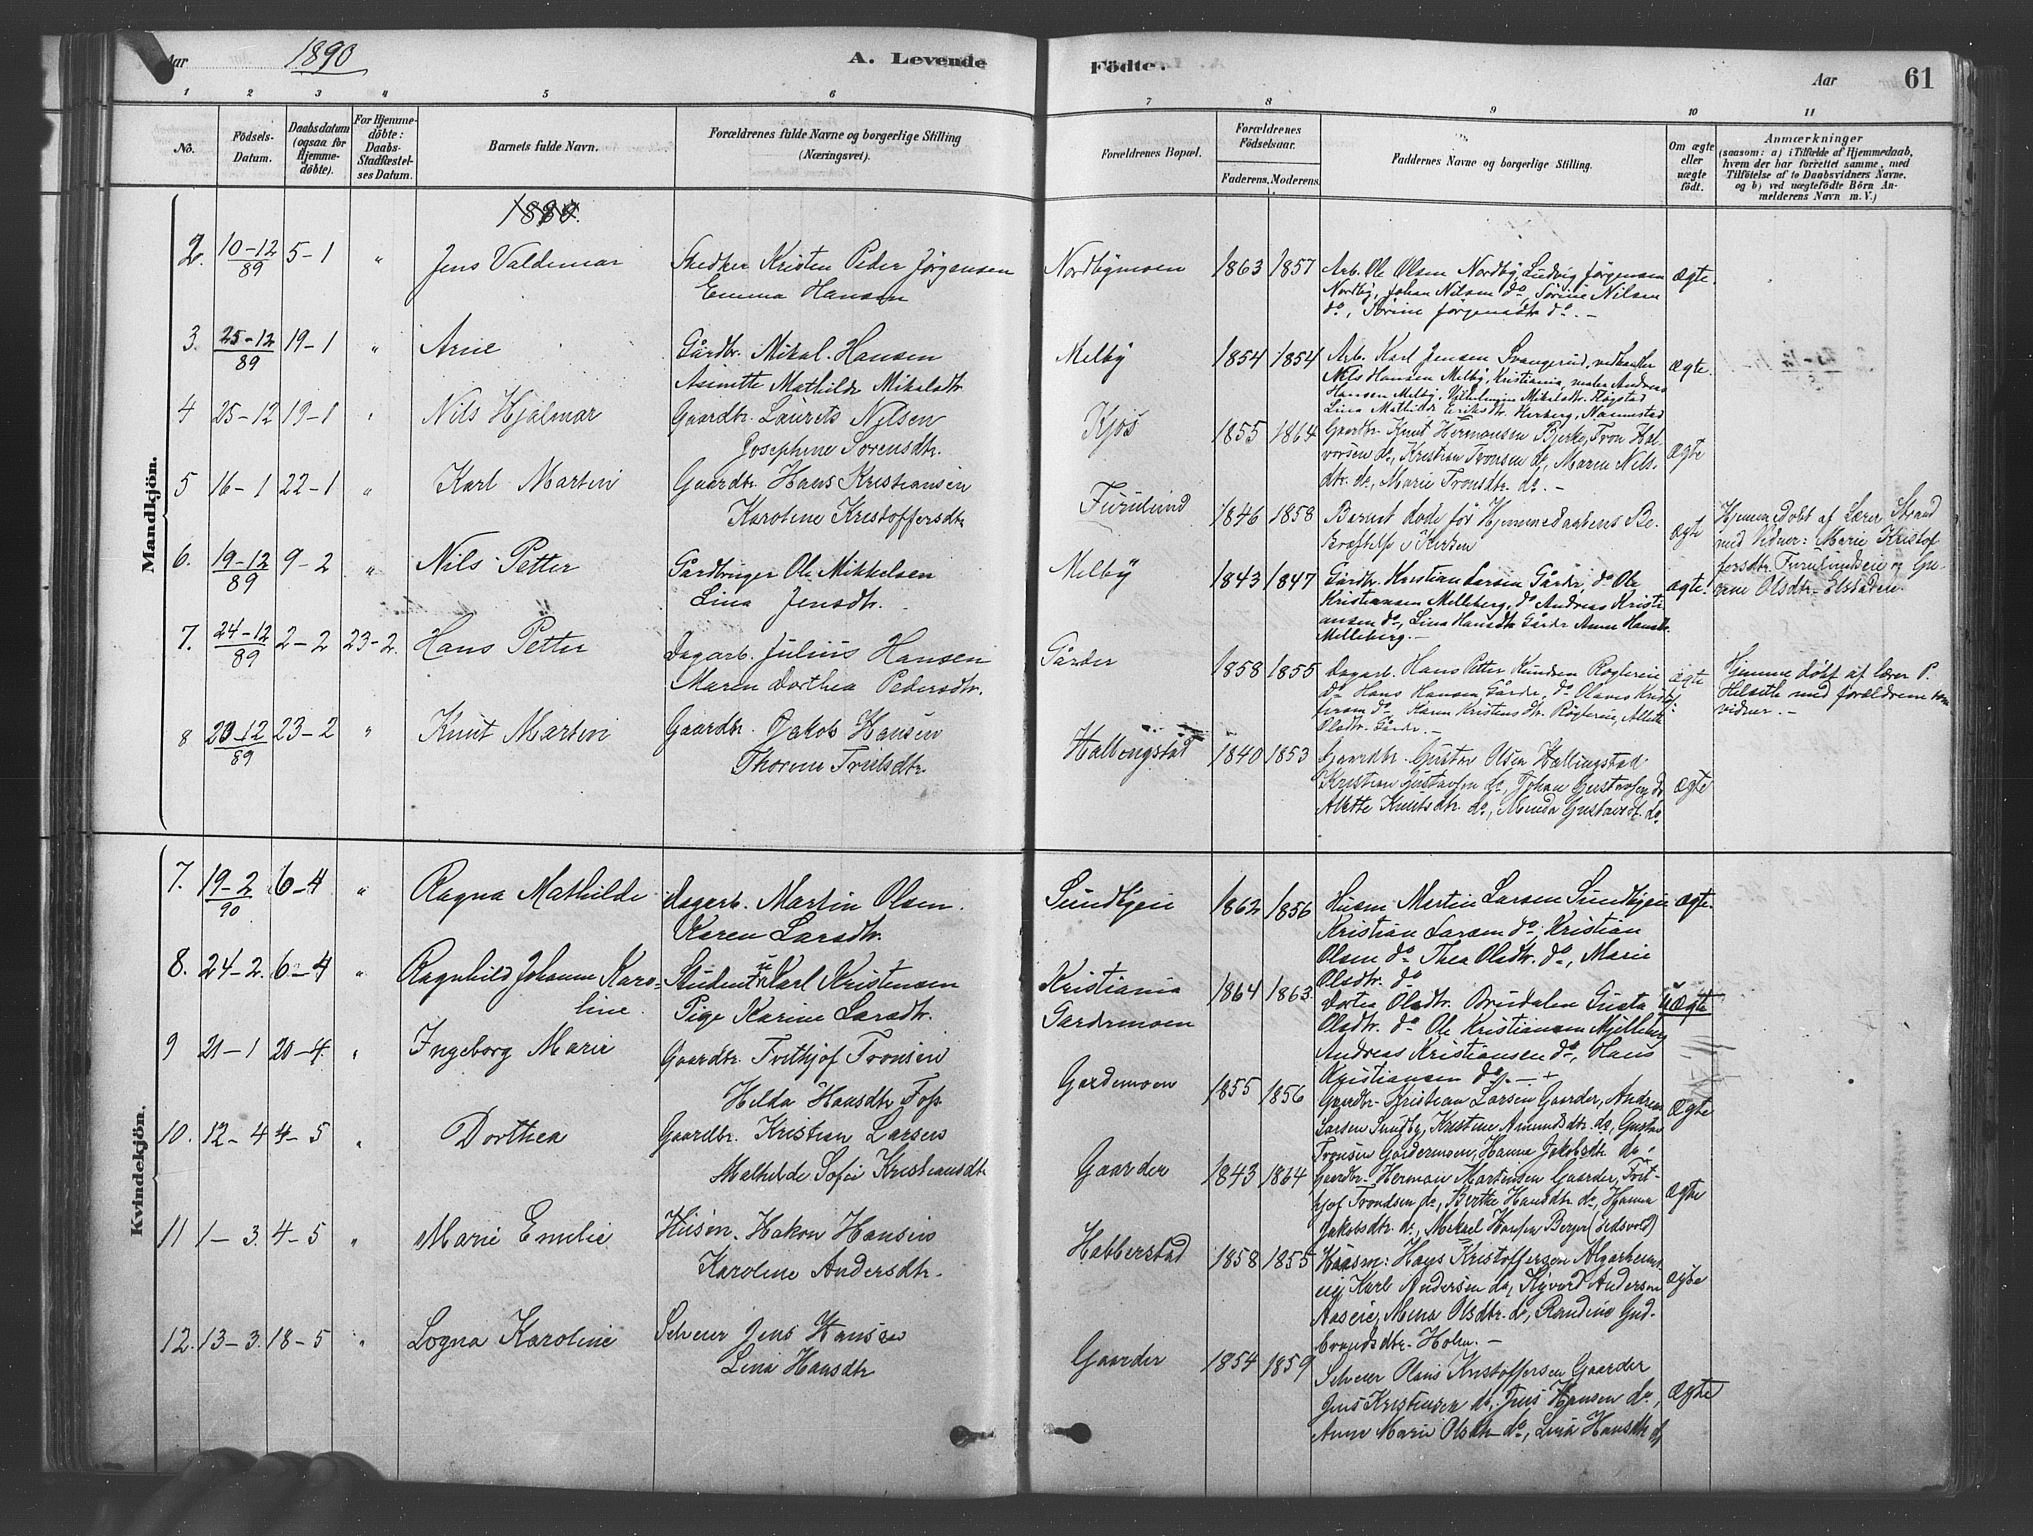 Aar 1890 A. Levende Födte. Aar 61
1 2 3 4 5 6 7 8 9 10 11
No.
Födsels-Datum.
Daabsdatum (ogsaa for Hjemme-döbte).
For Hjemme-döbte: Daabs-Stadfæstel-ses Datum.
Barnets fulde Navn.
Forældrenes fulde Navne og borgerlige Stilling (Næringsvei).
Forældrenes Bopæl.
Forældrenes Födselsaar.
Faderens. Moderens.
Faddernes Navne og borgerlige Stilling.
Om ægte eller uægte födt.
Anmærkninger
(saasom: a) i Tilfælde af Hjemmedaab,
hvem der har forrettet samme, med
Tilföielse af to Daabsvidners Navne,
og b) ved uægtefödte Börn An-
melderens Navn m. V.)
Mandkjön.
2. 10-12 89 5-1 " Jens Valdemar
Skedker Kristen Peder Jørgensen
Emma Hansen
Nordbymoen 1863 1857
Arb. Ole Olsen Nordby, Ludvig Jørgensen
Nordby, Johan Nilsen do, Sørine Nilsen
do, Sørine Jørgensdtr do. -
ægte.
3. 25-12 89 19-1 " Arne
Gårdbr. Mikal Hansen
Mathilde Mikalsdtr
Melby 1854 1854
Arb. Karl Jensen
Nils Hansen Melby, Kristiania, maler Andreas
Hansen Melby, Vilhelmine Mikelsdtr.
Lina Mathilde Eriksdtr. Herberg, Nannestad
ægte.
4 25-12 19-1 " Nils Hjalmar
Gaardbr. Laurets Nilsen
Josephine Sørensdtr.
Kjos 1855 1864
Gaardbr. Knut Hermansen Bjerke, Tron Hal-
vorsen do, Kristian Tronsen do, Maren Nils-
dtr. do, Marie Tronsdtr. do. -
ægte
5 16-1 22-1 " Karl Martin
Gaardbr. Hans Kristiansen
Karoline Kristoffersdtr
Furulund 1846 1858
Barnet døde før Hjemmedaabens Be-
kræftelse i Kirken
ægte
Hjemmedøbt af Lærer Strand
med Vidner: Marie Kristof-
fersdtr. Furulundeie og
Olsdtr.
6. 19-12 89 9-2 " Nils Petter
Gårdbruger Ole Mikkelsen
Lina Jensdtr.
Melby 1843 1847
Gårdbr. Kristian Larsen Gårder, do Ole
Kristiansen Melleberg, do Andreas Kristi-
ansen do, Lina Hansdtr Gårder Anne Hansdtr
Melleberg. -
ægte.
7. 24-12 89 2-2 23-2. Hans Petter
Dagarb. Julius Hansen
Maren Dorthea Pedersdtr.
Gårder 1858 1855
Dagarb. Hans Petter Knudsen
do Hans Hansen Gårder, do Olaves Kristof-
fersen do Karen Kristensdtr.
Olsdtr. Gårder. -
ægte
Hjemme døbt af lærer P.
med forældrene som
vidner. -
8 20-12 89 23-2 " Knut Martin
Gaardbr. Jakob Hansen
Thorine Truelsdtr.
Hallingstad 1840 1853
Gaardbr. Gustav Olsen Hallingstad
Kristian Gustavsen do, Johan Gustavsen do
Alette Knutsdtr. do, Minda Gustavsd. do.
ægte
Kvindekjön.
7. 19-2 90 6-4 " Ragna Mathilde
Dagarb. Martin Olsen.
Karen Larsdtr.
Sundbyeie 1862 1856
Husm Martin Larsen Sundbyeie
Kristian Larsen do, Kristian
Olsen do Thea Olsdtr. do, Marie
Olsdtr. do
ægte.
8. 24-2. 6-4 " Ragnhild Johanne Karo-
line.
Student Karl Kristensen
Pige Karine Larsdtr.
Kristiania
Gardermoen
1864 1863
Dortea Olsdtr. Brudalen Gusta
Olsdtr. do Ole Kristiansen Mjelleberg
Andreas Kristiansen do, Hans
Kristiansen do. -
uægte
9 21-1 20-4. " Ingeborg Marie
Gaardbr. Frithjof Tronsen
Helda Hansdtr
Gardemoen 1855 1856
Gaardbr. Kristian Larsen Gaarder, Andreas
Larsen Sundby, Kristine Amundsdtr. do, Gustav
Tronsen Gardermoen, Hanna Jakobsdtr. do.
ægte
10. 12-4 4-5 " Dorthea
Gaardbr. Kristian Larsen
Mathilde Sofie Kristiansdtr
Gaarder 1843 1864
Gaardbr. Herman Martinsen Gaarder, Frit-
hjof Trondsen do, Berthe Hansdtr. do, Hanna
Jakobsdtr. do, Mikael Hansen Berger (Eidsvold)
ægte
11 1-3. 4-5 " Marie Emilie
Husm. Hakon Hansen
Karoline Andersdtr.
Habberstad 1858 1855
Husm: Hans Kristoffersen Algarheims-
eie, Karl Andersen do, Andersen
Aaseie, Mina Olsdtr. do, Randine Gud-
brandsdtr. Holm. -
ægte
12. 13-3. 18-5 " Logna Karoline
Selveier Jens Hansen
Lina Hansdtr
Gaarder 1854 1859
Selveier Olaus Kristoffersen Gaarder
Jens Kristiansen do, Jens Hansen do,
Anne Marie Olsdtr do, Lina Hansdtr do
ægte